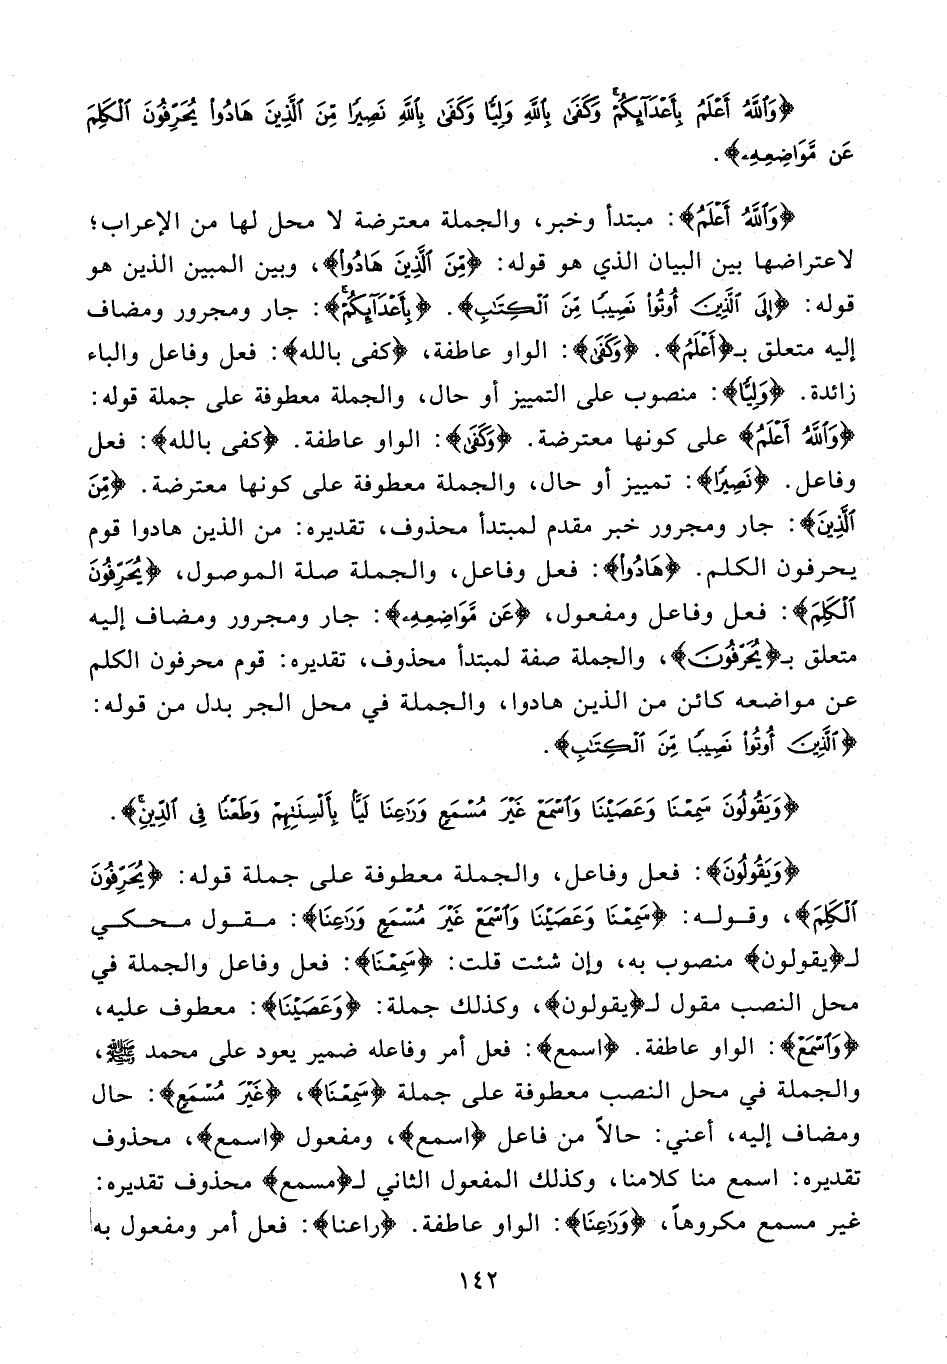 ﴿وَٱللَّهُ أَعْلَمُ بِأَعْدَآئِكُمْ ۚ وَكَفَىٰ بِٱللَّهِ وَلِيًّا وَكَفَىٰ بِٱللَّهِ نَصِيرًا مِّنَ ٱلَّذِينَ هَادُوا۟ يُحَرِّفُونَ ٱلْكَلِمَ
عَن مَّوَاضِعِهِۦ﴾.
﴿وَٱللَّهُ أَعْلَمُ﴾: مبتدأ وخبر، والجملة معترضة لا محل لها من الإعراب؛
لاعتراضها بين البيان الذي هو قوله: ﴿مِّنَ ٱلَّذِينَ هَادُوا۟﴾، وبين المبين الذين هو
قوله: ﴿إِلَى ٱلَّذِينَ أُوتُوا۟ نَصِيبًا مِّنَ ٱلْكِتَـٰبِ﴾. ﴿بِأَعْدَآئِكُمْ ۚ﴾: جار ومجرور ومضاف
إليه متعلق بـ﴿أَعْلَمُ﴾. ﴿وَكَفَىٰ﴾: الواو عاطفة، ﴿كفى بالله﴾: فعل وفاعل والباء
زائدة. ﴿وَلِيًّا﴾: منصوب على التمييز أو حال، والجملة معطوفة على جملة قوله:
﴿وَٱللَّهُ أَعْلَمُ﴾ على كونها معترضة. ﴿وَكَفَىٰ﴾: الواو عاطفة. ﴿كفى بالله﴾: فعل
وفاعل. ﴿نَصِيرًا﴾: تمييز أو حال، والجملة معطوفة على كونها معترضة. ﴿مِّنَ
ٱلَّذِينَ﴾: جار ومجرور خبر مقدم لمبتدأ محذوف، تقديره: من الذين هادوا قوم
يحرفون الكلم. ﴿هَادُوا۟﴾: فعل وفاعل، والجملة صلة الموصول، ﴿يُحَرِّفُونَ
ٱلْكَلِمَ﴾: فعل وفاعل ومفعول، ﴿عَن مَّوَاضِعِهِۦ﴾: جار ومجرور ومضاف إليه
متعلق بـ﴿يُحَرِّفُونَ﴾، والجملة صفة لمبتدأ محذوف، تقديره: قوم محرفون الكلم
عن مواضعه كائن من الذين هادوا، والجملة في محل الجر بدل من قوله:
﴿ٱلَّذِينَ أُوتُوا۟ نَصِيبًا مِّنَ ٱلْكِتَـٰبِ﴾.
﴿وَيَقُولُونَ سَمِعْنَا وَعَصَيْنَا وَٱسْمَعْ غَيْرَ مُسْمَعٍ وَرَٰعِنَا لَيًّۢا بِأَلْسِنَتِهِمْ وَطَعْنًا فِى ٱلدِّينِ ۚ﴾.
﴿وَيَقُولُونَ﴾: فعل وفاعل، والجملة معطوفة على جملة قوله: ﴿يُحَرِّفُونَ
ٱلْكَلِمَ﴾، وقوله: ﴿سَمِعْنَا وَعَصَيْنَا وَٱسْمَعْ غَيْرَ مُسْمَعٍ وَرَٰعِنَا﴾: مقول محكي
لـ﴿يقولون﴾ منصوب به، وإن شئت قلت: ﴿سَمِعْنَا﴾: فعل وفاعل والجملة في
محل النصب مقول لـ﴿يقولون﴾، وكذلك جملة: ﴿وَعَصَيْنَا﴾: معطوف عليه،
﴿وَٱسْمَعْ﴾: الواو عاطفة. ﴿اسمع﴾: فعل أمر وفاعله ضمير يعود على محمد ﷺ،
والجملة في محل النصب معطوفة على جملة ﴿سَمِعْنَا﴾، ﴿غَيْرَ مُسْمَعٍ﴾: حال
ومضاف إليه، أعني: حالاً من فاعل ﴿اسمع﴾، ومفعول ﴿اسمع﴾، محذوف
تقديره: اسمع منا كلامنا، وكذلك المفعول الثاني لـ﴿مسمع﴾ محذوف تقديره:
غير مسمع مكروهاً، ﴿وَرَٰعِنَا﴾: الواو عاطفة. ﴿راعنا﴾: فعل أمر ومفعول به
١٤٢